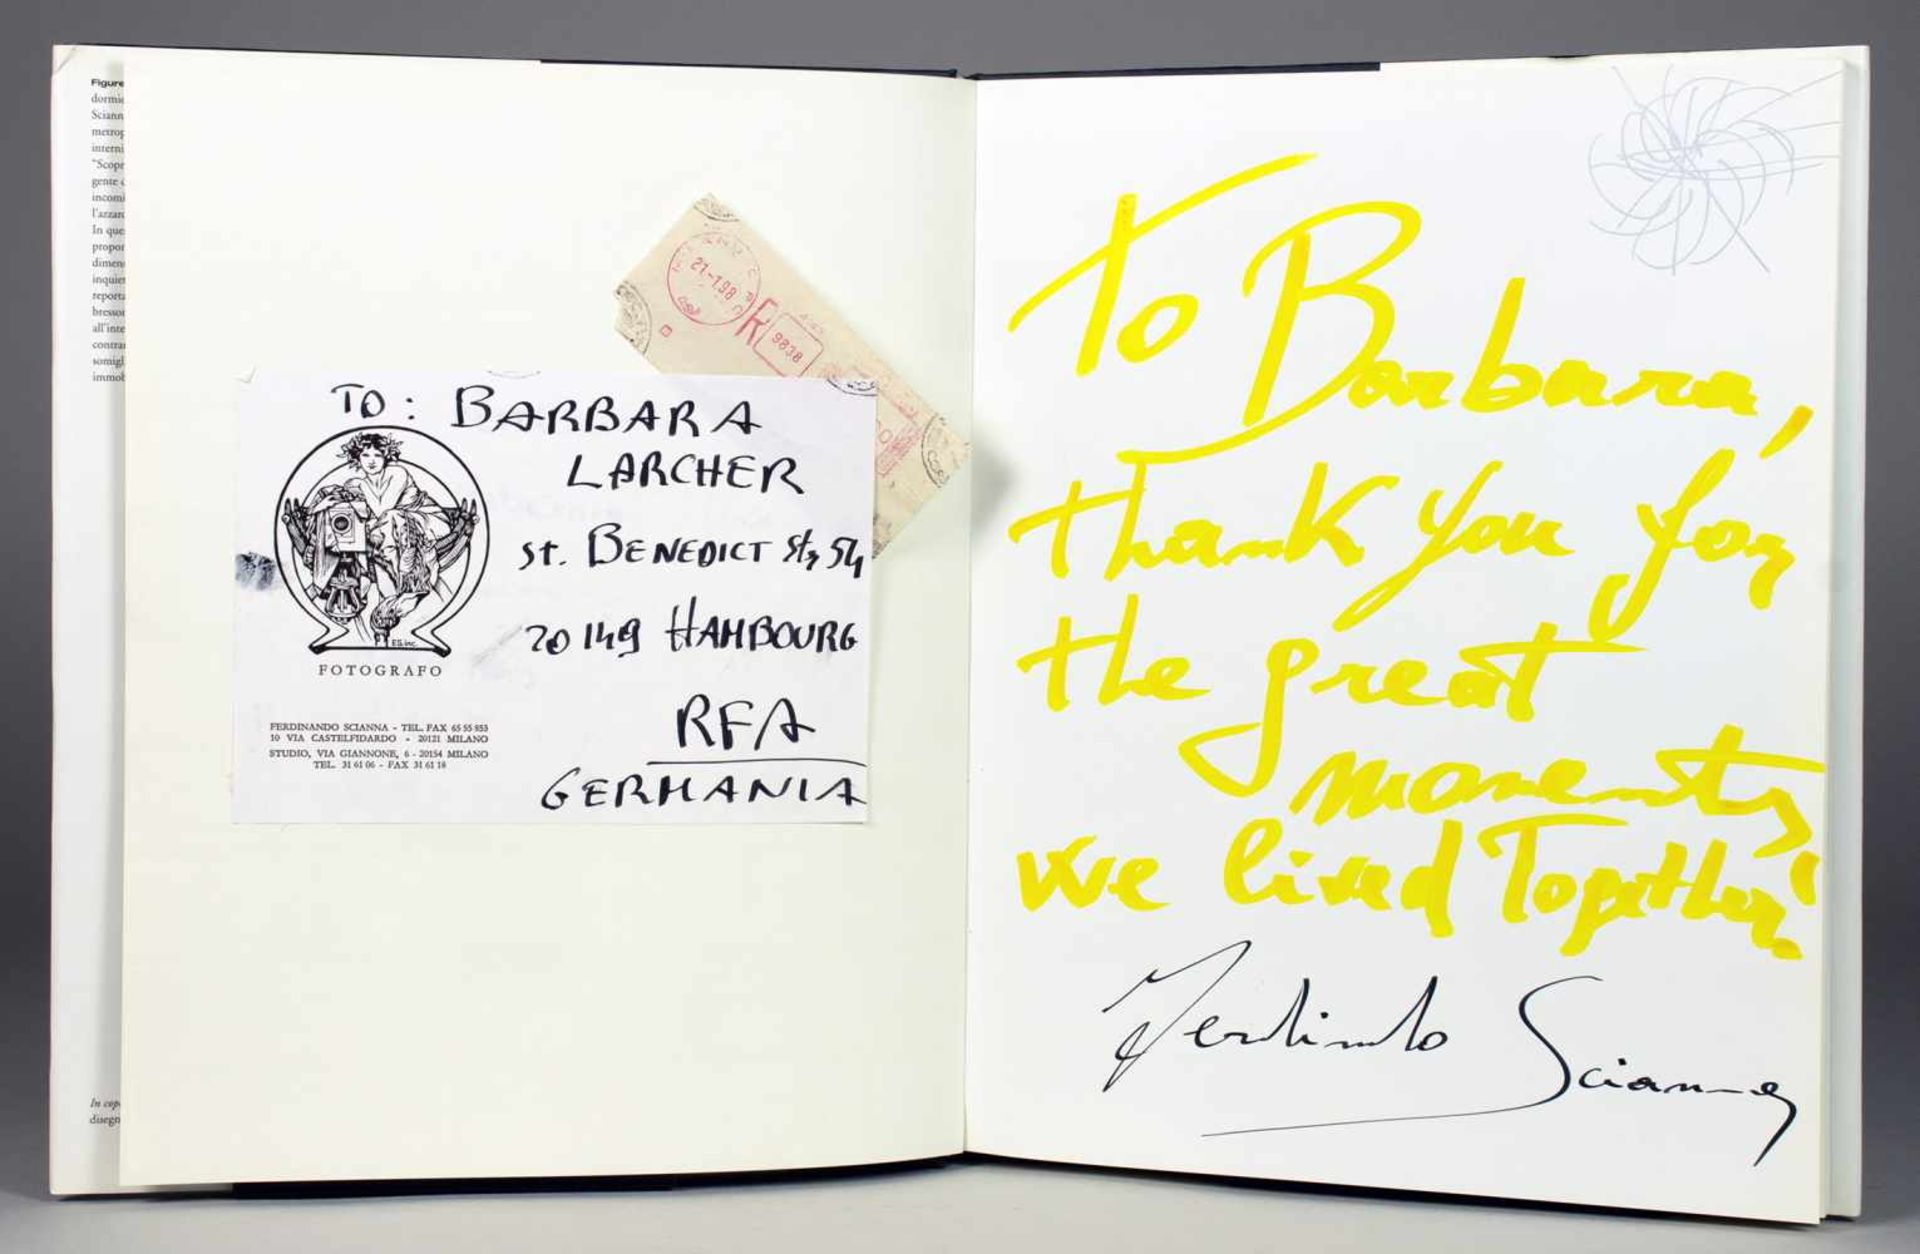 Figure
dormie
Scianna
metrop
interni
"Scopr
gente c
incomi
l'azzard
In que
propor
dimens
inquiet
reporta
bresson
all'inte
contra
somigl
immob
In cop
disegn
21.-7.98
R
9838
TO: BARBARA
LARCHER
St. BENEDICT Str 54
20149 HAMBOURG
RFA
GERMANIA
FOTOGRAFO
FERDINANDO SCIANNA - TEL. FAX 65 55 953
10 VIA CASTELFIDARDO - 20121 MILANO
STUDIO, VIA GIANNONE, 6 - 20154 MILANO
TEL. 31 61 06 - FAX 31 61 18
To Barbara,
thank you for
the great
moments,
we lived Together!
Ferdinando Scianna